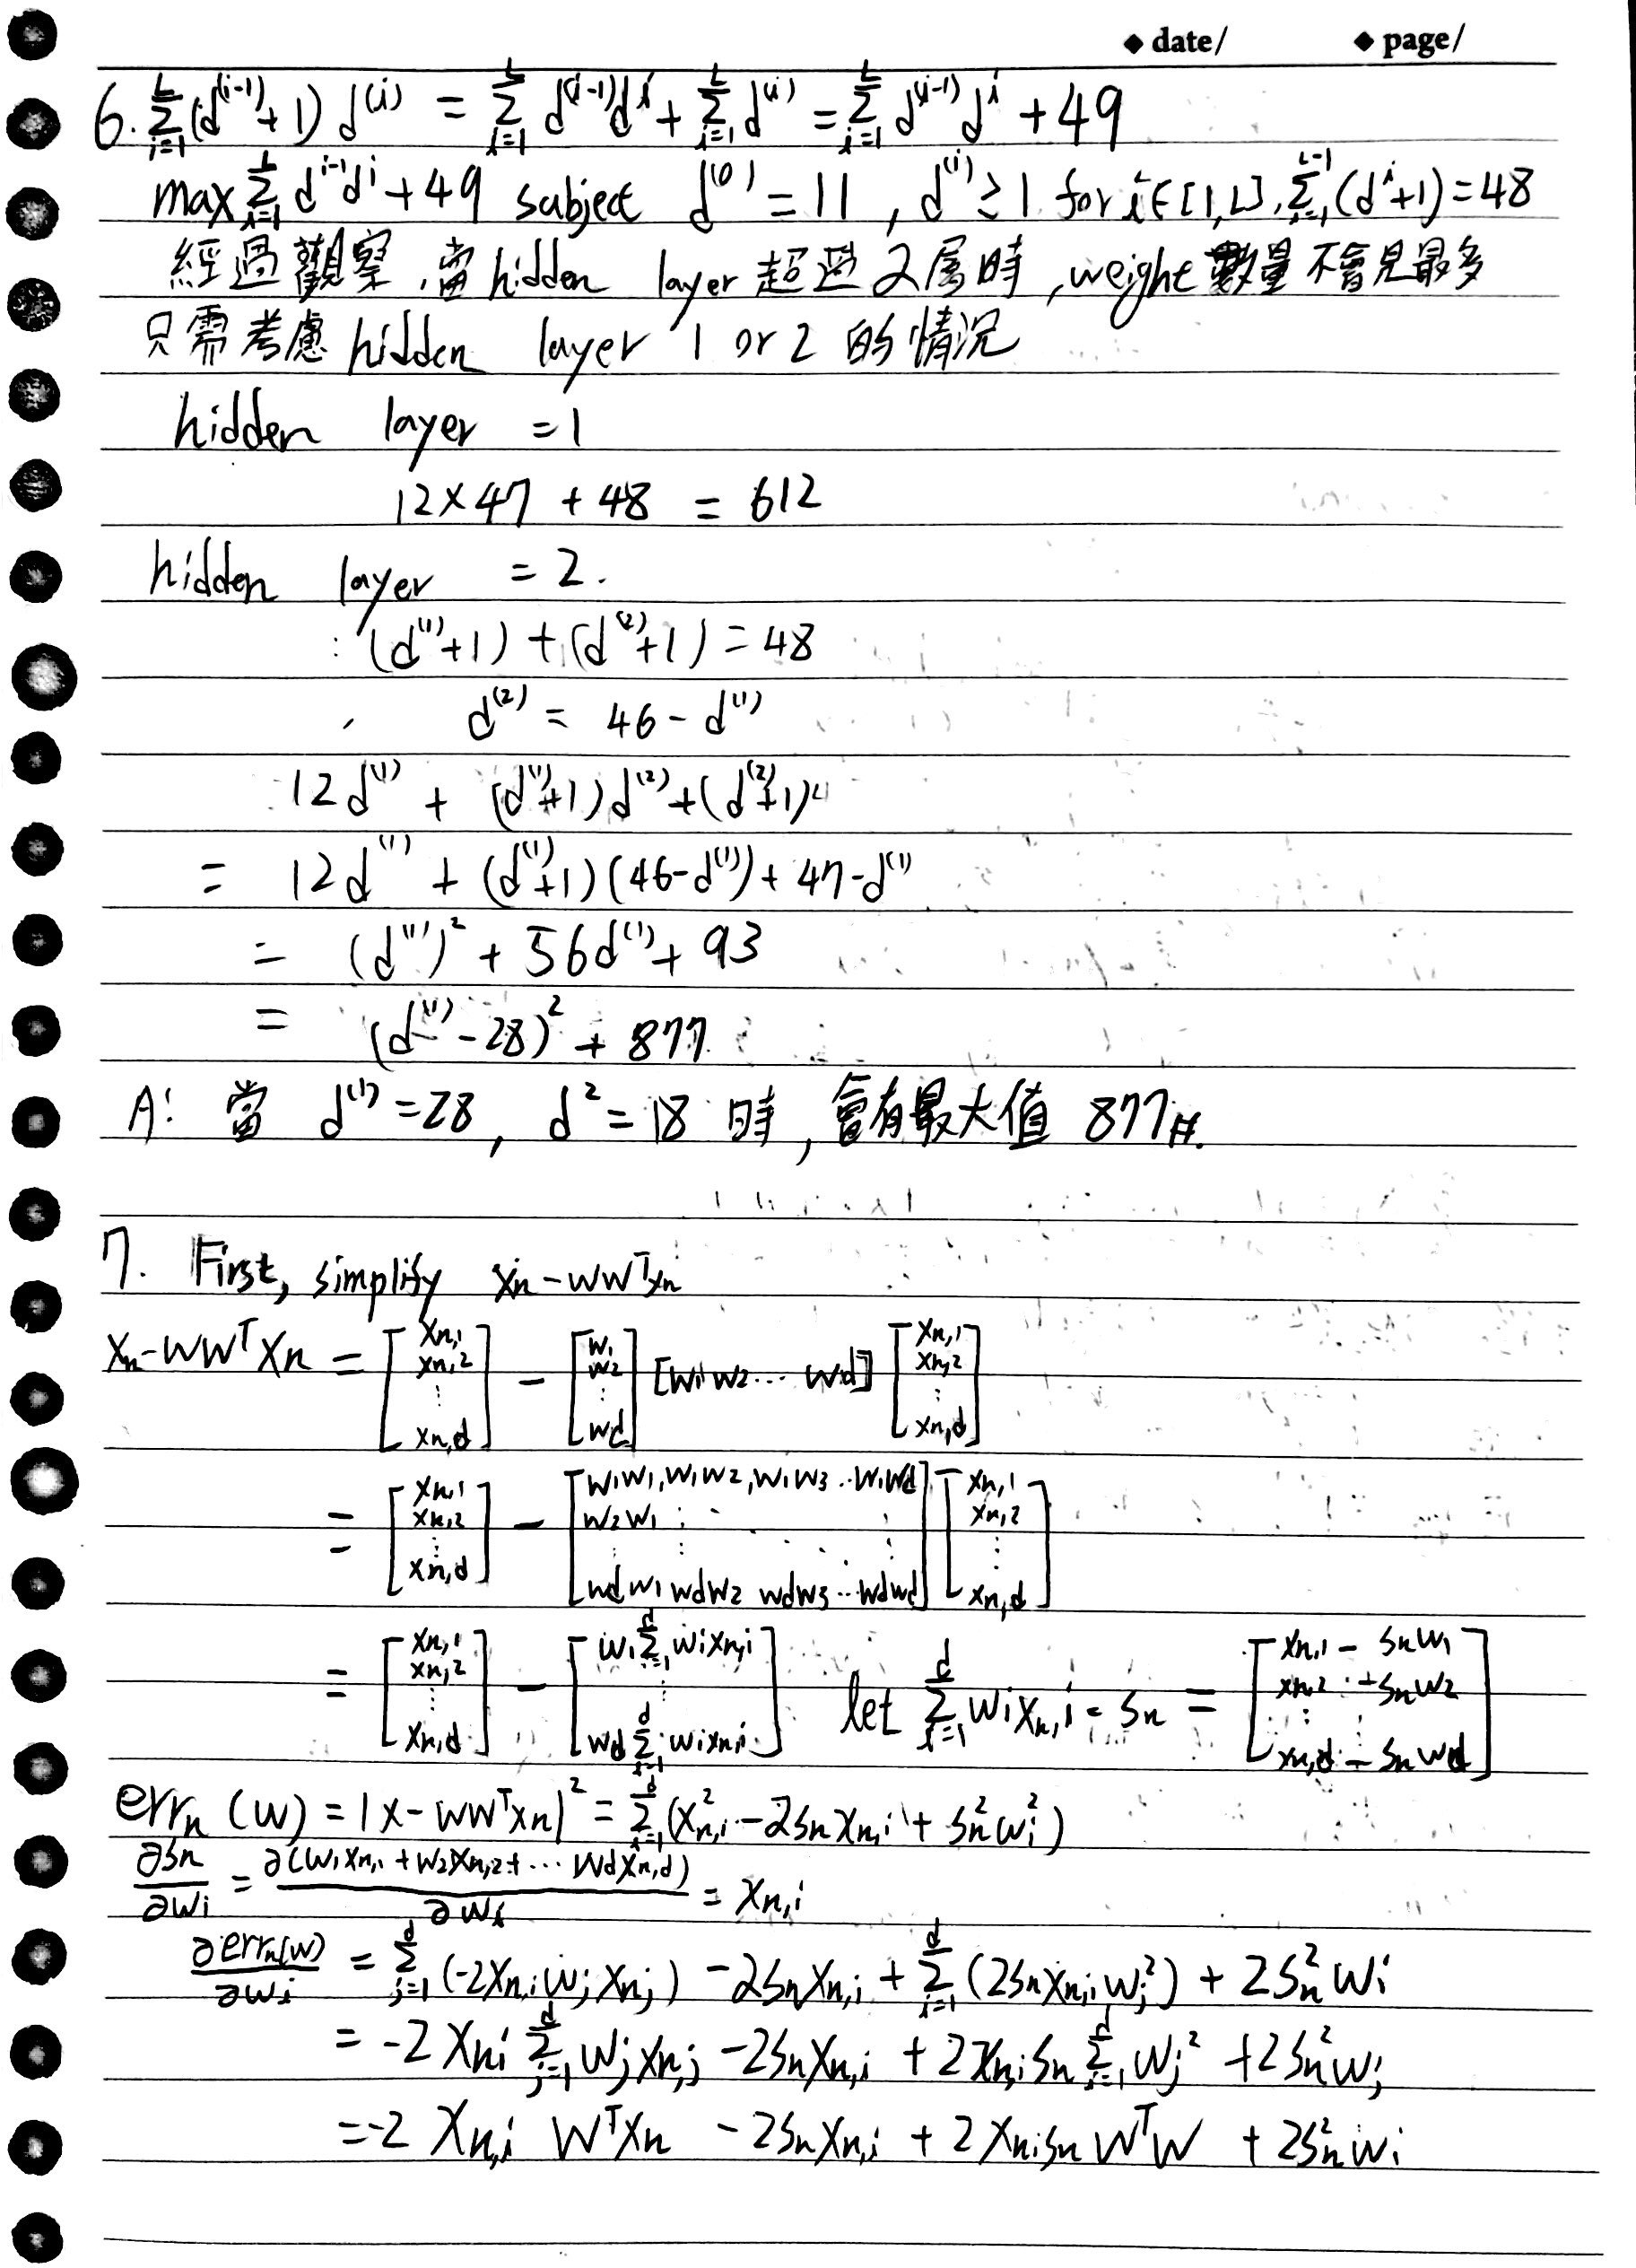 ◆ date/ ◆ page/
6. \sum_{i=1}^{L} (d^{(i-1)}+1) d^{(i)} = \sum_{i=1}^{L} d^{(i-1)} d^{i} + \sum_{i=1}^{L} d^{(i)} = \sum_{i=1}^{L} d^{(i-1)} d^{i} + 49
max \sum_{i=1}^{L} d^{i-1} d^{i} + 49 subject d^{(0)} = 11 , d^{(i)} ≥ 1 for i ∈ [1,L], \sum_{i=1}^{L-1} (d^{i}+1) = 48
經過觀察,當 hidden layer 超過 2 層時, weight 數量不會是最多
只需考慮 hidden layer 1 or 2 的情況
hidden layer = 1
12×47 + 48 = 612
hidden layer = 2.
(d^{(1)}+1) + (d^{(2)}+1) = 48
d^{(2)} = 46 - d^{(1)}
12d^{(1)} + (d^{(1)}+1) d^{(2)} + (d^{(2)}+1)
= 12d^{(1)} + (d^{(1)}+1)(46-d^{(1)}) + 47-d^{(1)}
= (d^{(1)})^2 + 56d^{(1)} + 93
= (d^{(1)} - 28)^2 + 877
A: 當 d^{(1)} = 28, d^2 = 18 時, 會有最大值 877 #.
7. First, simplify x_n - ww^T x_n
x_n - ww^T x_n = [x_{n,1} x_{n,2} ⋮ x_{n,d}] - [w_1 w_2 ⋮ w_d] [w_1 w_2 ⋯ w_d] [x_{n,1} x_{n,2} ⋮ x_{n,d}]
= [x_{n,1} x_{n,2} ⋮ x_{n,d}] - [w_1w_1, w_1w_2, w_1w_3 ⋯ w_1w_d w_2w_1 ⋮ w_dw_1 w_dw_2 w_dw_3 ⋯ w_dw_d] [x_{n,1} x_{n,2} ⋮ x_{n,d}]
= [x_{n,1} x_{n,2} ⋮ x_{n,d}] - [w_1 \sum_{i=1}^{d} w_i x_{n,i} ⋮ w_d \sum_{i=1}^{d} w_i x_{n,i}] let \sum_{i=1}^{d} w_i x_{n,i} = s_n = [x_{n,1} - s_n w_1 x_{n,2} - s_n w_2 ⋮ x_{n,d} - s_n w_d]
err_n (w) = |x - ww^T x_n|^2 = \sum_{i=1}^{d} (x_{n,i}^2 - 2s_n x_{n,i} + s_n^2 w_i^2)
∂s_n/∂w_i = ∂(w_1x_{n,1} + w_2x_{n,2} + ⋯ w_dx_{n,d})/∂w_i = x_{n,i}
∂err_n(w)/∂w_i = \sum_{j=1}^{d} (-2x_{n,i} w_j x_{n,j}) - 2s_n x_{n,i} + \sum_{i=1}^{d} (2s_n x_{n,i} w_j^2) + 2s_n^2 w_i
= -2 x_{n,i} \sum_{j=1}^{d} w_j x_{n,j} - 2s_n x_{n,i} + 2x_{n,i} s_n \sum_{i=1}^{d} w_j^2 + 2s_n^2 w_i
= -2 x_{n,i} w^T x_n - 2s_n x_{n,i} + 2 x_{n,i} s_n w^T w + 2s_n^2 w_i